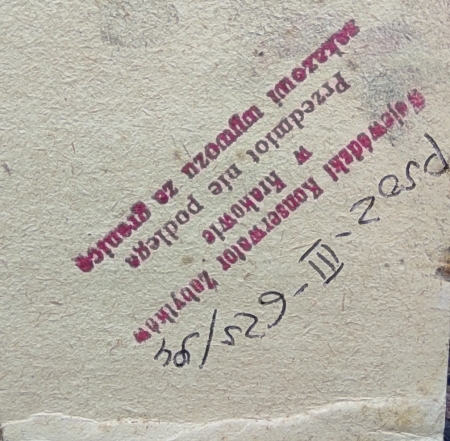 PSOZ-III-625/94
Wojewódzki Konserwator Zabytków
w Krakowie
Przedmiot nie podlega
zakazowi wywozu za granicę